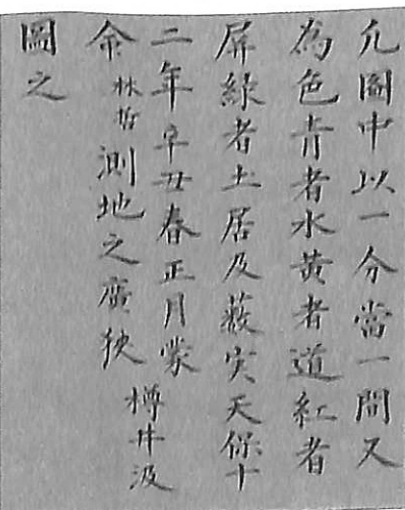 凡圖中以一分當一間又
為色青者水黄者道紅者
屏緑者土居及薮実天保十
二年辛丑春正月蒙
命林哲測地之廣狭樽井汲
圖之